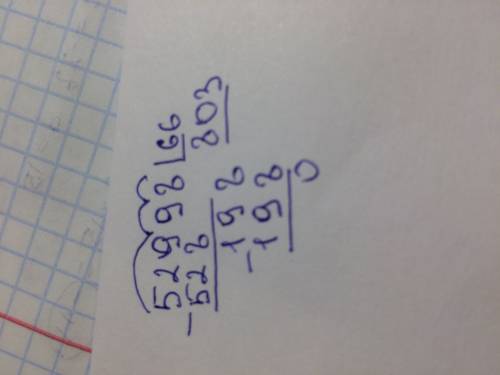 −52998 |66
528 803
−198
198
0